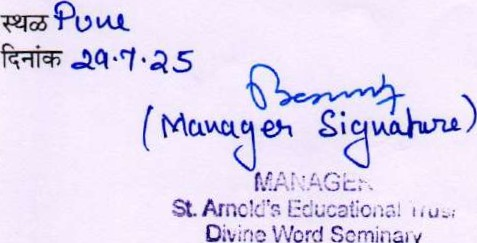 स्थळ Pune
दिनांक 29.7.25
(Manager Signature)
MANAGER
St. Arnold's Educational Trust
Divine Word Seminary